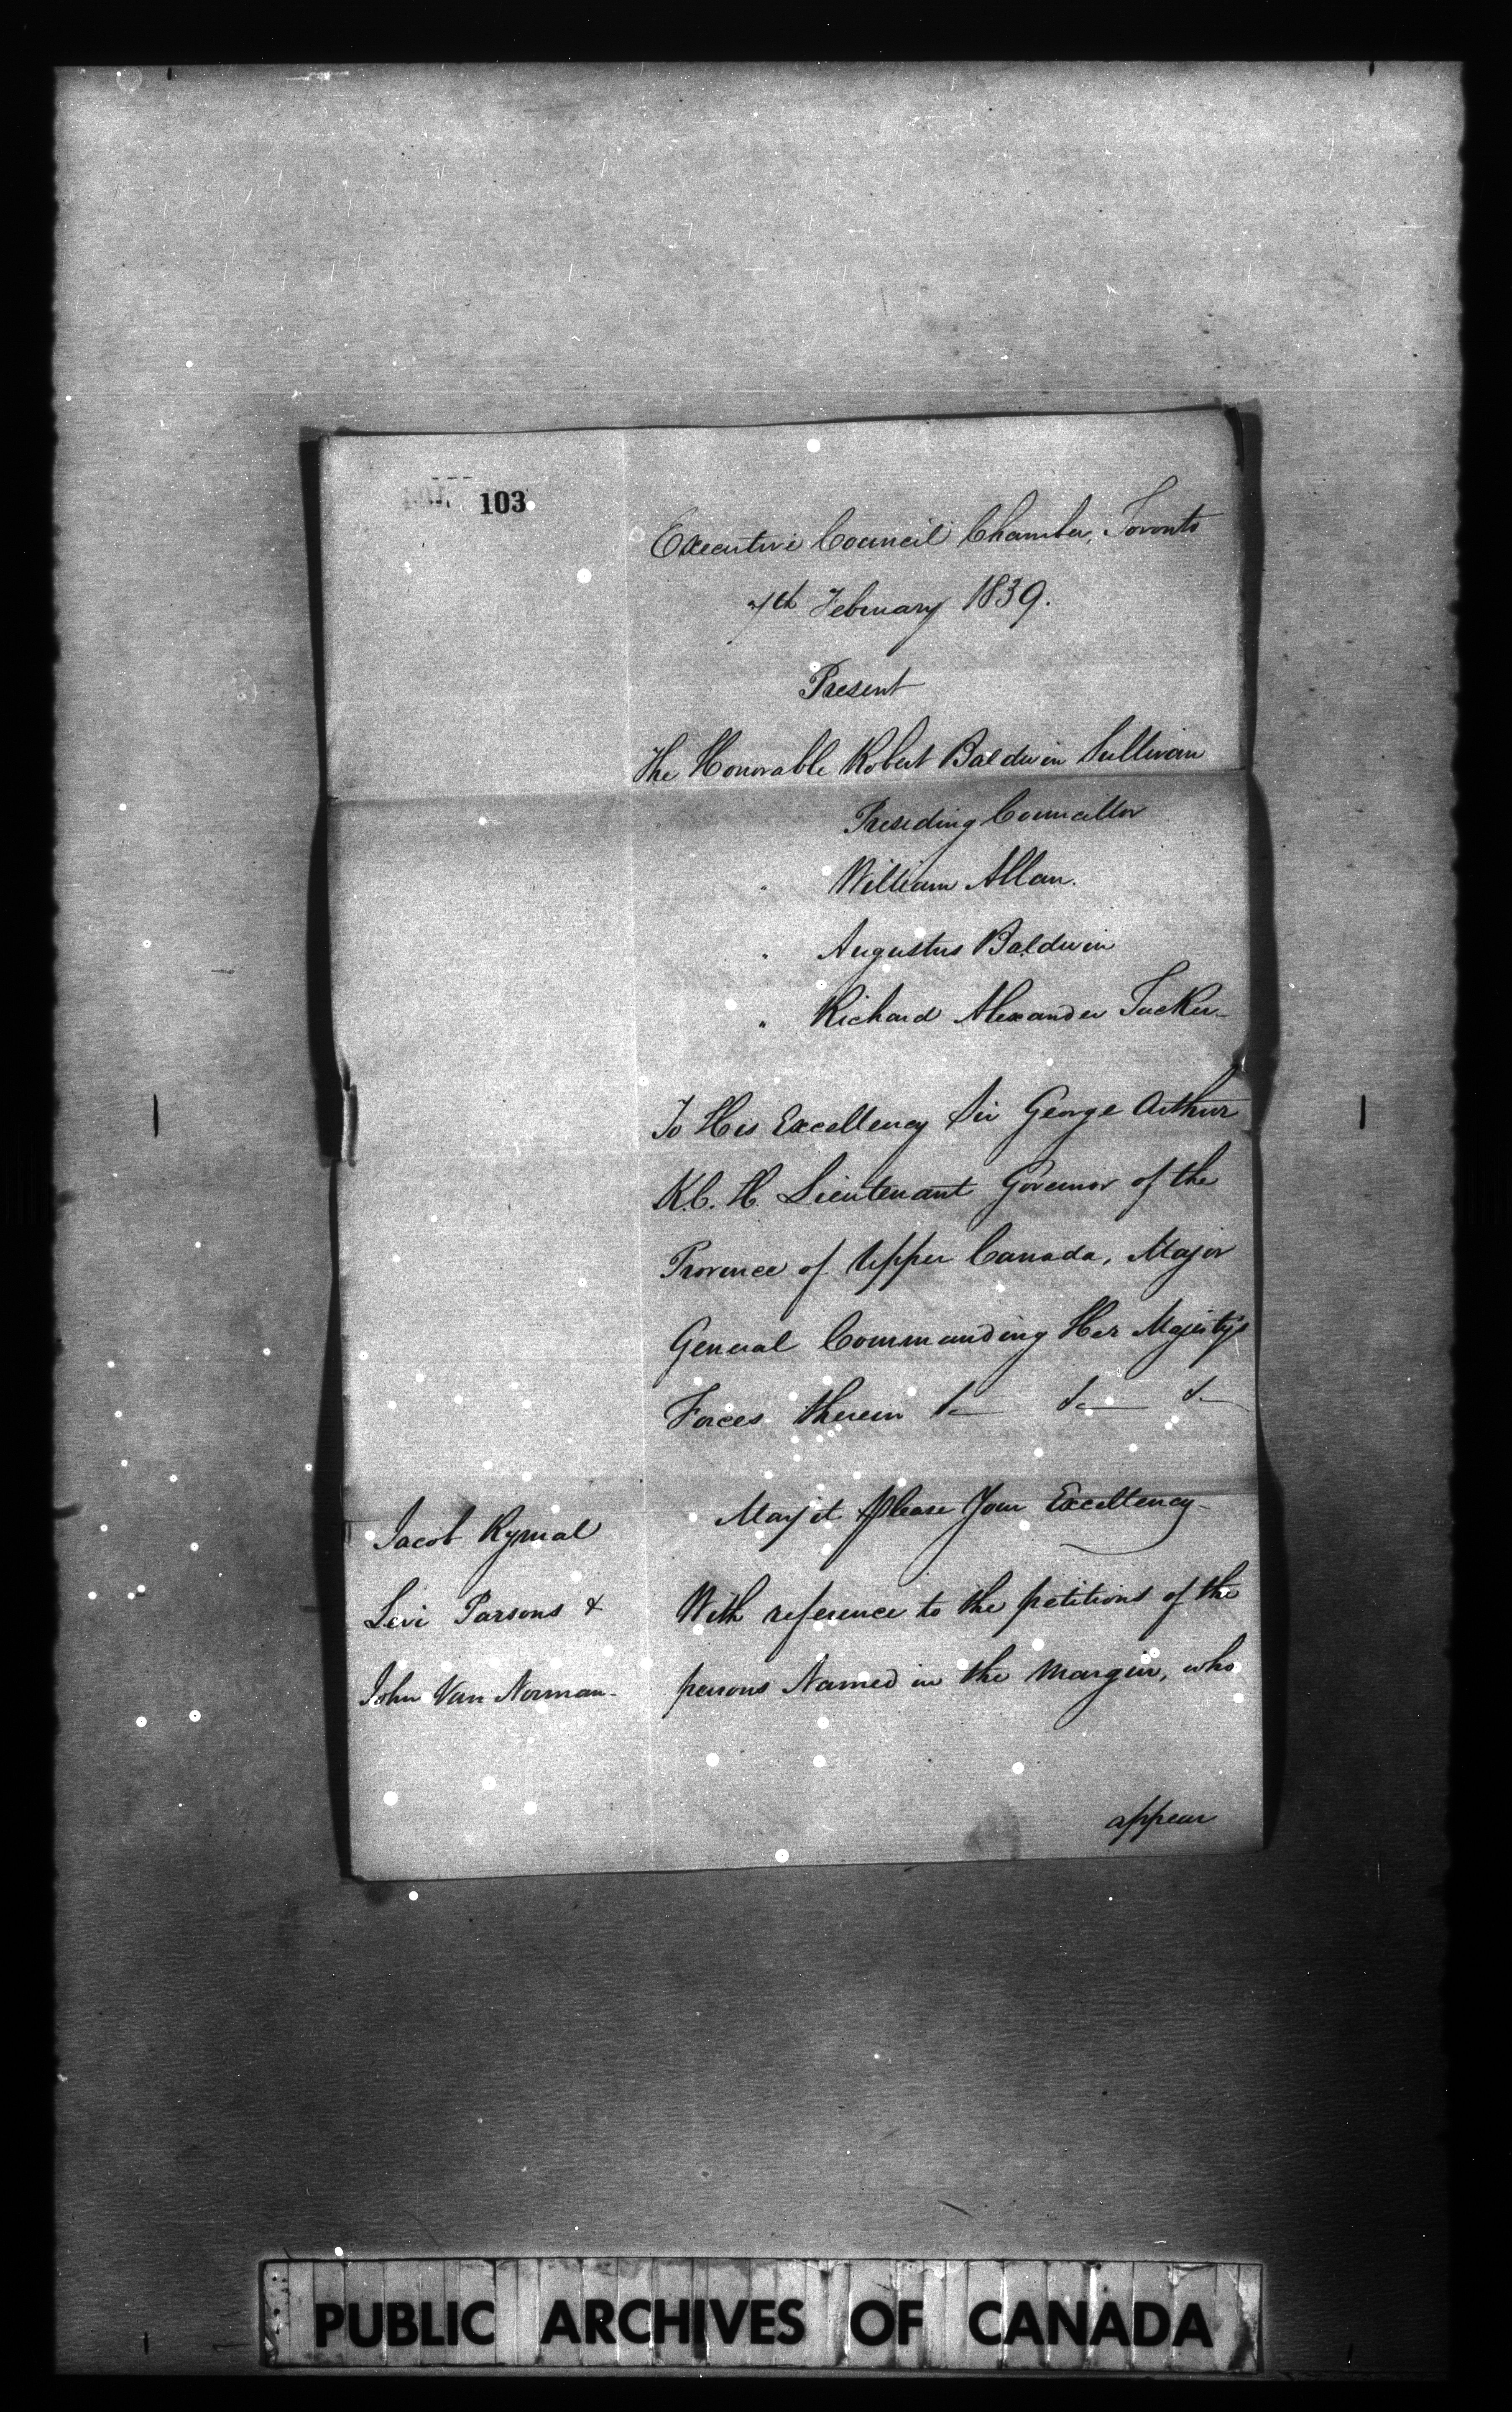 103
Executive Council Chamber, Toronto
7th February 1839.
Present
The Honorable Robert Baldwin Sullivan
Presiding Councillor
" William Allan.
" Augustus Baldwin
" Richard Alexander Tucker
To His Excellency Sir George Arthur
K.C.H. Lieutenant Governor of the
Province of Upper Canada, Major
General Commanding Her Majesty's
Forces therein &c &c &c
May it please Your Excellency
Jacob Rymal
Levi Parsons &
John Van Norman
With reference to the petitions of the
persons Named in the Margin, who
appear
PUBLIC ARCHIVES OF CANADA